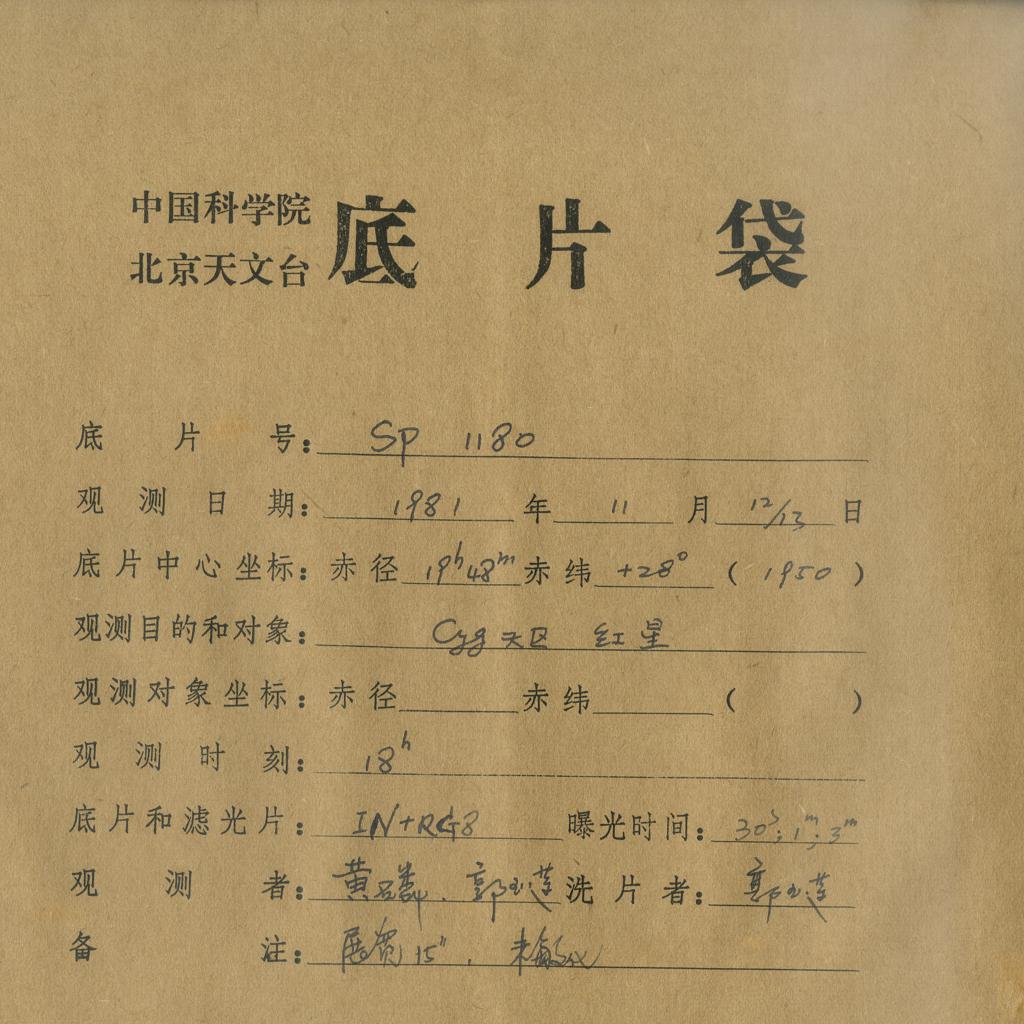 中国科学院
北京天文台 底片袋
底片号: Sp 1180
观测日期: 1981 年 11 月 12/13 日
底片中心坐标: 赤径 19h48m 赤纬 +28° ( 1950 )
观测目的和对象: Cyg 天区 红星
观测对象坐标: 赤径 赤纬 ( )
观测时刻: 18h
底片和滤光片: IN+RG8 曝光时间: 30s; 1m; 3m
观测者: 黄磷. 郭玉莲 洗片者: 郭玉莲
备注: 展宽 15", 未敏化